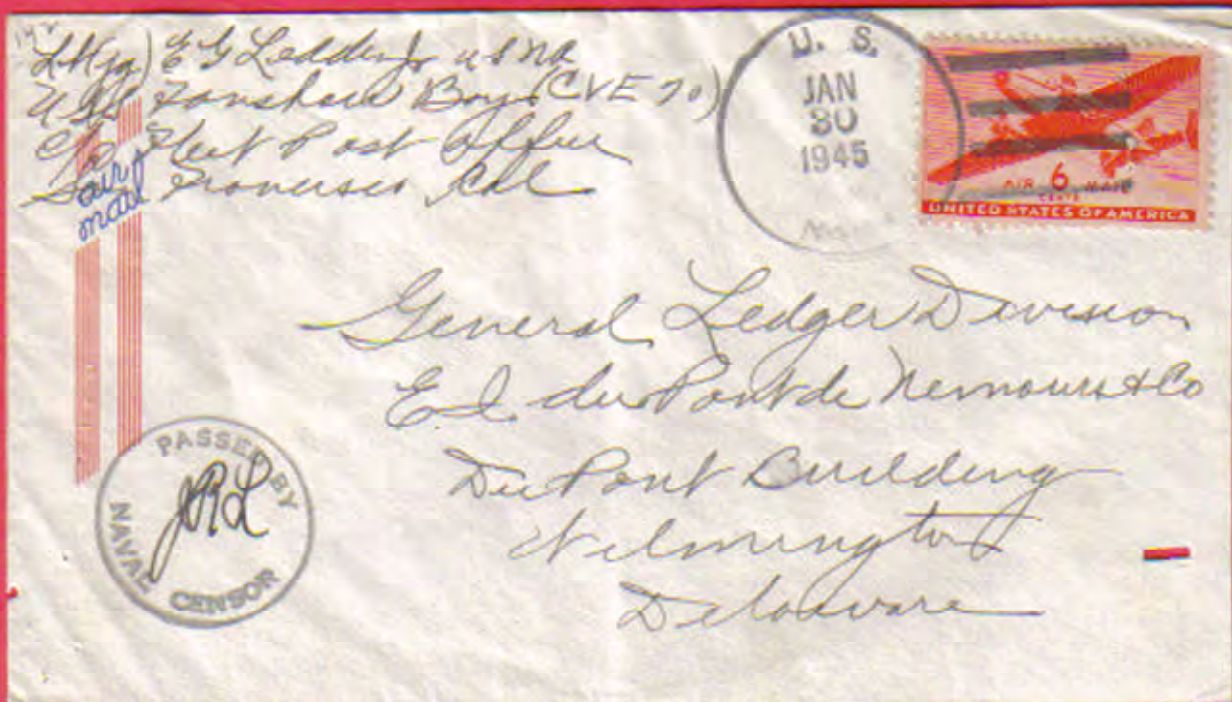 Lt(jg) E G Ledden Jr USNR
USS Fanshaw Bay (CVE 70)
c/o Fleet Post Office
San Francisco Cal
air mail
U. S.
JAN
30
1945
AIR 6 MAIL
CENTS
UNITED STATES OF AMERICA
General Ledger Division
E I du Pont de Nemours & Co
Du Pont Building
Wilmington
Delaware
PASSED BY
JRL
NAVAL CENSOR